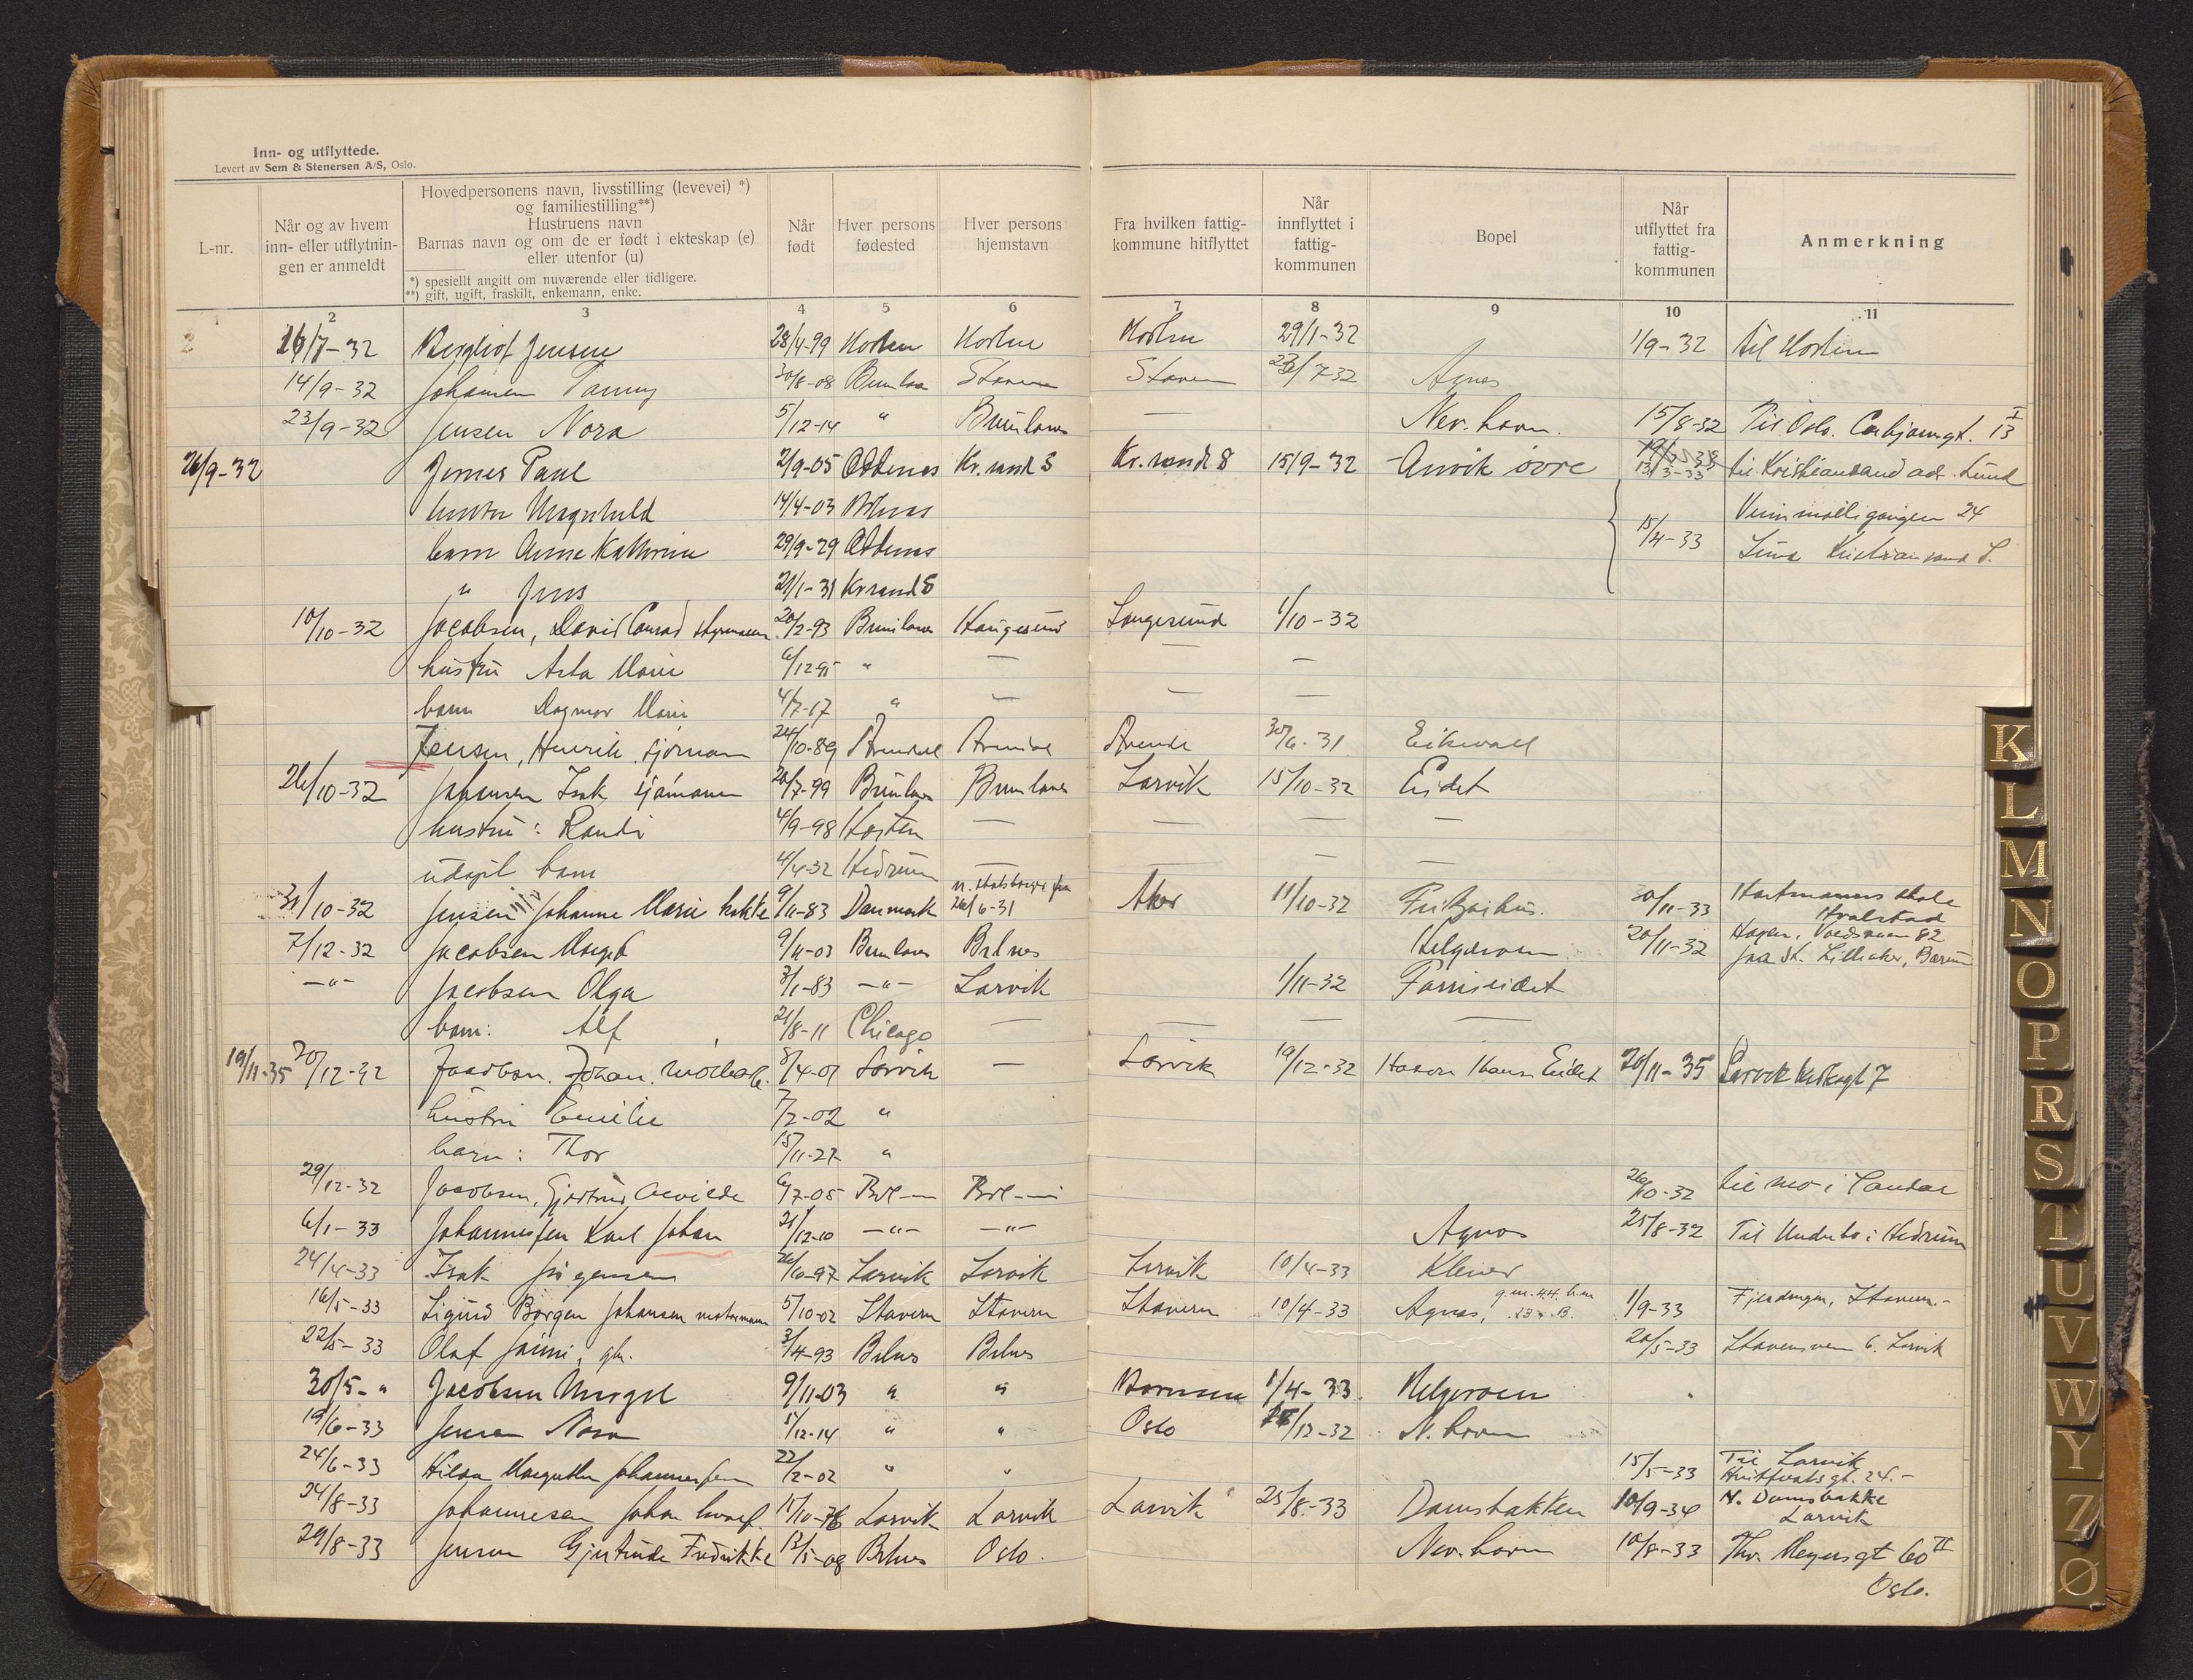 Inn- og utflyttede.
Levert av Sem & Stenersen A/S, Oslo.
L-nr.
Når og av hvem inn- eller utflytnin-gen er anmeldt
Hovedpersonens navn, livsstilling (levevei) *)
og familiestilling**)
Hustruens navn
Barnas navn og om de er født i ekteskap (e)
eller utenfor (u)
*) spesiellt angitt om nuværende eller tidligere.
**) gift, ugift, fraskilt, enkemann, enke.
Når født
Hver persons fødested
Hver persons hjemstavn
Fra hvilken fattig-kommune hitflyttet
Når innflyttet i fattig-kommunen
Bopel
Når utflyttet fra fattig-kommunen
Anmerkning
2 3 4 5 6 7 8 9 10 11
16/7-32 Bergliot Jensen 28/4-99 Horten Horten Horten 29/1-32 1/9-32 til Horten
14/9-32 Johansen Fanny 30/8-08 Brunlanes Stavern Stavern 7 32 Agnes
23/9-32 Jensen Nora 5/12-14 " Brunlanes — Nev. havn. 15/8-32 Til Oslo. 13 I
26/9-32 Paul 2/9-05 Oddernes Kr.sand S Kr.sand S 15/9-32 Anvik øvre 13/3-33 til Kristiansand adr. Lund
hustru Magnhild 14/4-03 Brlnes 24
barn Anne Kathrine 29/9-29 Oddernes 15/4-33 Lund Kristiansand S.
" Jens 21/1-31 Kr sand S
10/10-32 Jacobsen, David Conrad styrmann 20/2-93 Brunlanes Haugesund Langesund 1/10-32
hustru Asta Marie 6/12 95 " — — —
barn Dagmar Marie 4/7-17 " — — —
Jensen, Henrik, sjømann 24/10-89 Arendal Arendal Arendal 30/6-31 Eikevall
26/10-32 Johansen Isak sjømann 20/7-99 Brunlanes Brunlanes Larvik 15/10-32 Eidet
hustru: Randi 4/9-98 Horten — — — —
udøpt barn 4/4-32 Hedrum — — — —
31/10-32 Jensen Johanne Marie kokke 9/11-83 Danmark n. statsborger fra 26/6-31 Aker 11/10-32 Fritzøhus. 30/11-33 Hartmanns skole Hvalstad
7/12-32 Jacobsen Margit 9/11-03 Brunlanes Brlnes Helgeroen 20/11-32 Hagen, 82
Lilleaker, Bærum
-"- Jacobsen Olga 3/1-83 -"- Larvik 1/11-32 Farriseidet
barn: Alf 21/8-11 Chicago — — — —
19/11-35 30/12-32 Jacobsen. Johan. 8/4-01 Larvik — Larvik 19/12-32 Eidet 20/11-35 Larvik 7
hustru Emilie 7/2-02 "
barn: Thor 15/11-27 "
29/12-32 Jacobsen, Gjertrud Alvilde 6/7-05 Brl— Brl— 26/10-32 til Mo i Landal
6/1-33 Johannesen Karl Johan 21/12-10 -"- -"- Agnes 25/8-32 Til Underbo i Hedrum
24/4-33 Isak Jørgensen 26/6-97 Larvik Larvik Larvik 10/4-33 Klever
16/5-33 Sigurd Borgen Johansen 5/10-02 Stavern Stavern Stavern 10/4-33 Agnes, g.nr. 44 b.nr. 13. B. 1/9-33 Fjerdingen, Stavern.-
22/5-33 Olaf 3/4-93 Brlnes Brlnes 20/5-33 Stavernsveien 6. Larvik
30/5-" Jacobsen Margit 9/11-03 " " 1/4-33. Helgeroen
19/6-33 Jensen Nora 5/12-14 " " Oslo /12-32 N. havn
24/6-33 Hilda Margrethe Johannesen 22/2-02 " " 15/5-33 Til Larvik
Huitfeldtsgt. 24.-
24/8-33 Johannesen Johan 11/10- Larvik Larvik Larvik 25/8-33 Damsbakken 10/9-34 N. Damsbakke Larvik
29/8-33 Jensen Gjertrude Fredrikke 13/5-08 Brlnes Oslo. Nev. havn 10/8-33 Thv. Meyersgt 60 II
Oslo.
K
L
M
N
O
P
R
S
T
U
V
W
Y
Z
Ø